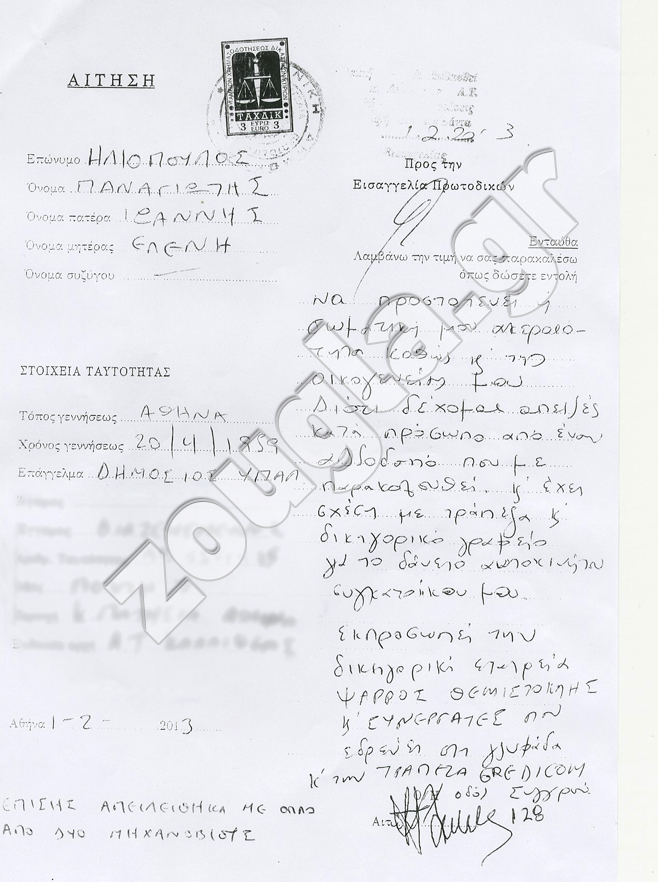 ΑΙΤΗΣΗ
ΤΑΧΔΙΚ
3 ΕΥΡΩ EURO 3
1.2.2013
Προς την
Εισαγγελία Πρωτοδικών
Επώνυμο ΗΛΙΟΠΟΥΛΟΣ
Όνομα ΠΑΝΑΓΙΩΤΗΣ
Όνομα πατέρα ΙΩΑΝΝΗΣ
Όνομα μητέρας ΕΛΕΝΗ
Όνομα συζύγου —
Ενταύθα
Λαμβάνω την τιμή να σας παρακαλέσω
όπως δώσετε εντολή
να προστατευεί ή
σωματική μου ακεραιο-
τητα καθως κ' της
οικογενείας μου
Διότι δέχομαι απειλές
κατά πρόσωπο από έναν
που με
παρακολουθεί. κ' έχει
σχέση με τράπεζα κ'
δικηγορικό γραφείο
για το δάνειο αυτοκινήτου
συγκατοίκου μου.
εκπροσωπεί την
δικηγορική εταιρεία
ΨΑΡΡΟΣ ΘΕΜΙΣΤΟΚΛΗΣ
κ' ΣΥΝΕΡΓΑΤΕΣ που
εδρεύει στη γλυφάδα
κ' την ΤΡΑΠΕΖΑ CREDICOM
οδός Συγγρού
128
ΣΤΟΙΧΕΙΑ ΤΑΥΤΟΤΗΤΑΣ
Τόπος γεννήσεως ΑΘΗΝΑ
Χρόνος γεννήσεως 20/4/1959
Επάγγελμα ΔΗΜΟΣΙΟΣ ΥΠΑΛ
Αθήνα 1-2- 2013
ΕΠΙΣΗΣ ΑΠΕΙΛΕΙΘΗΚΑ ΜΕ ΟΠΛΟ
ΑΠΟ ΔΥΟ ΜΗΧΑΝΟΒΙΟΥΣ
zougla.gr